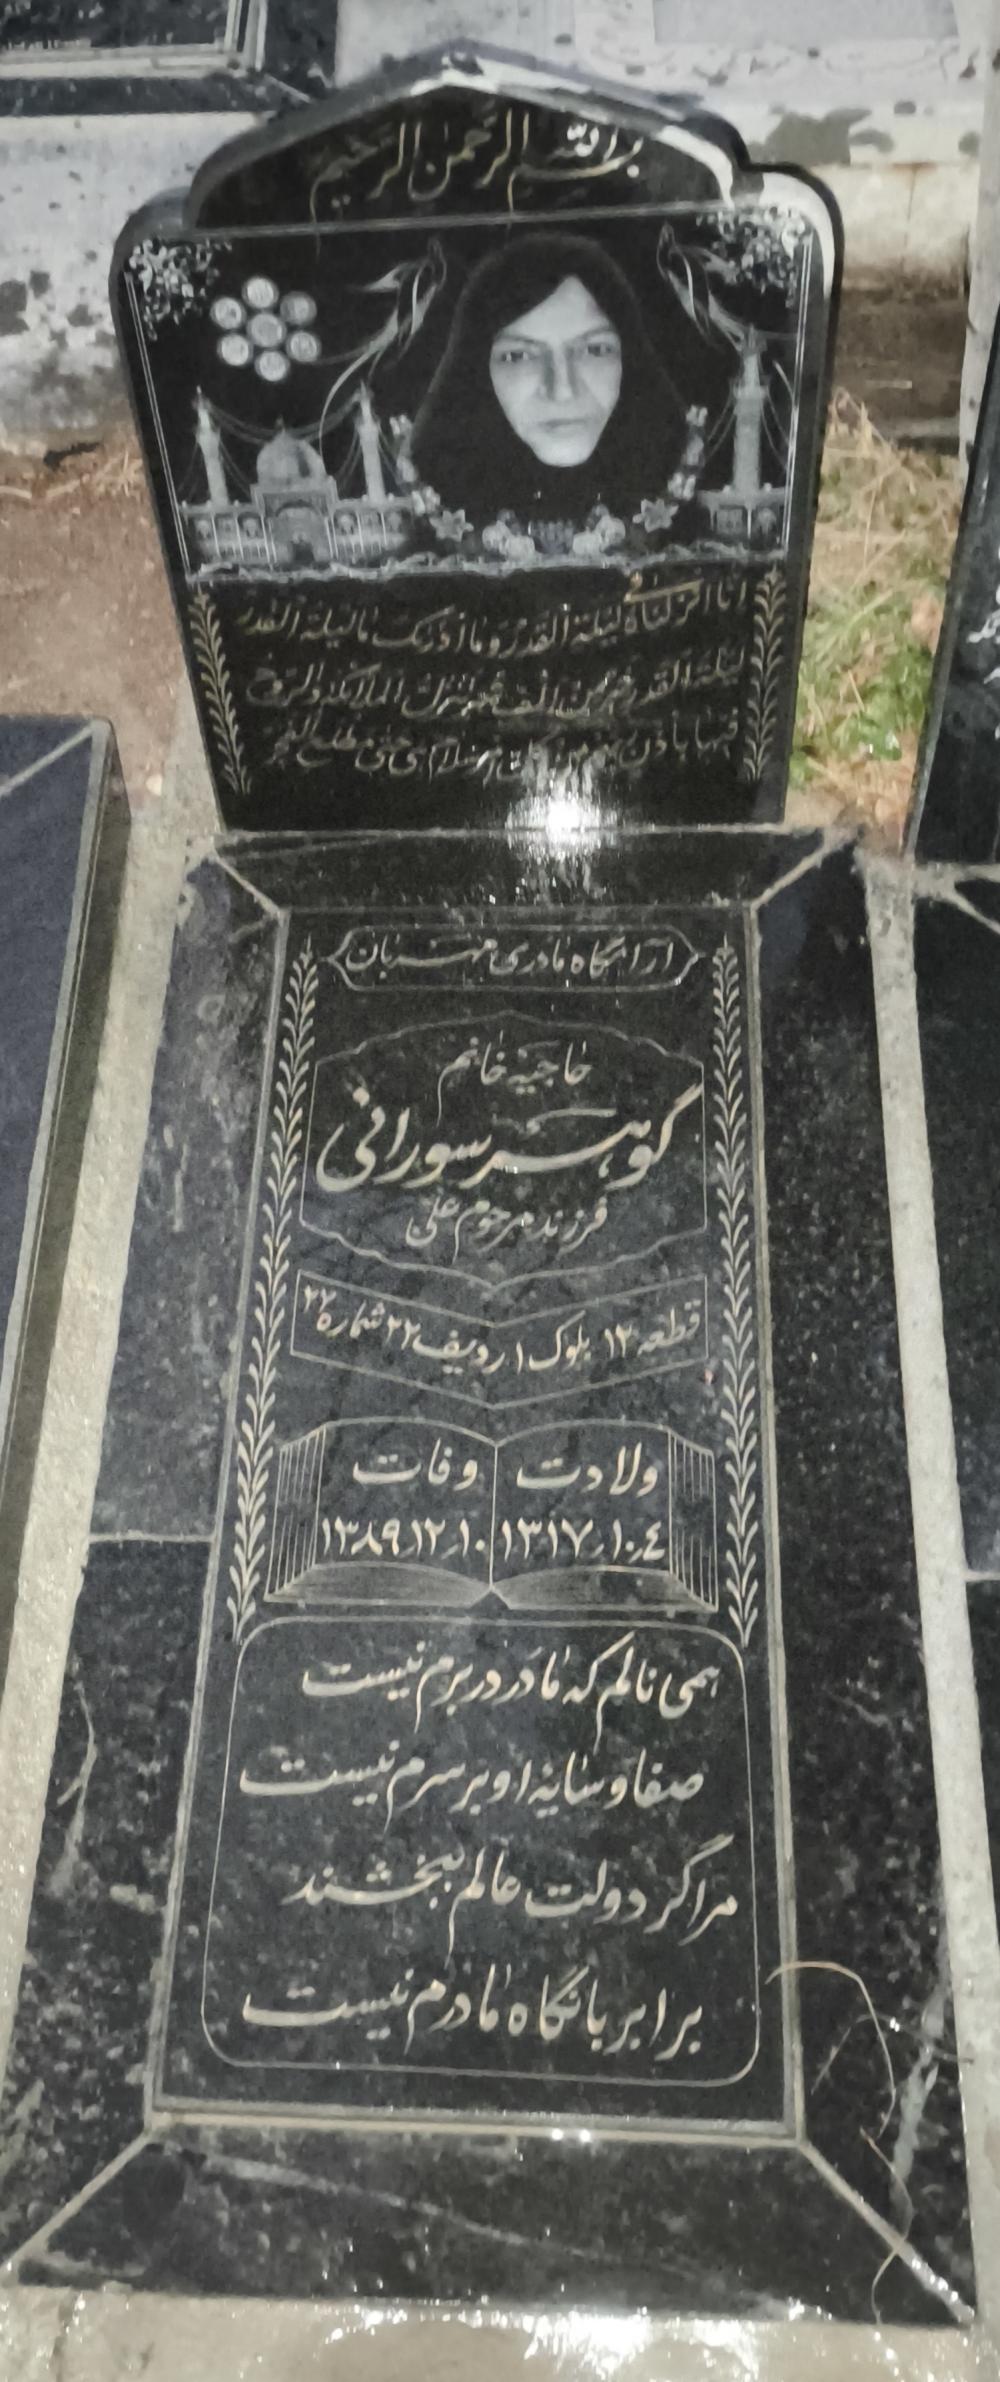 بسم الله الرحمن الرحیم
انا انزلناه فی لیلة القدر و ما ادریک ما لیلة القدر
لیلة القدر خیر من الف شهر تنزل الملائکة والروح
فیها باذن ربهم من کل امر سلام هی حتی مطلع الفجر
آرامگاه مادری مهربان
حاجیه خانم
گوهر سورانی
فرزند مرحوم علی
قطعه ۱۲ بلوک ۱ ردیف ۲۲ شماره ۲۲
ولادت وفات
۱۳۱۷٫۱۰٫٤ ۱۳۸۹٫۱۲٫۱۰
همی نالم که مادر در برم نیست
صفا و سایه او بر سرم نیست
مرا گر دولت عالم ببخشند
برابر با نگاه مادرم نیست